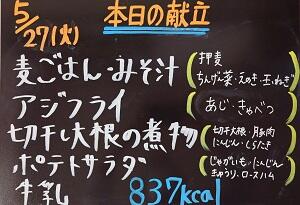 5/27(火) 本日の献立
麦ごはん・みそ汁 (押麦 ちんげん菜・えのき・玉ねぎ)
アジフライ (あじ・きゃべつ)
切干し大根の煮物 (切干大根・豚肉 にんじん・しらたき)
ポテトサラダ (じゃがいも・にんじん きゅうり・ロースハム)
牛乳 837kcal